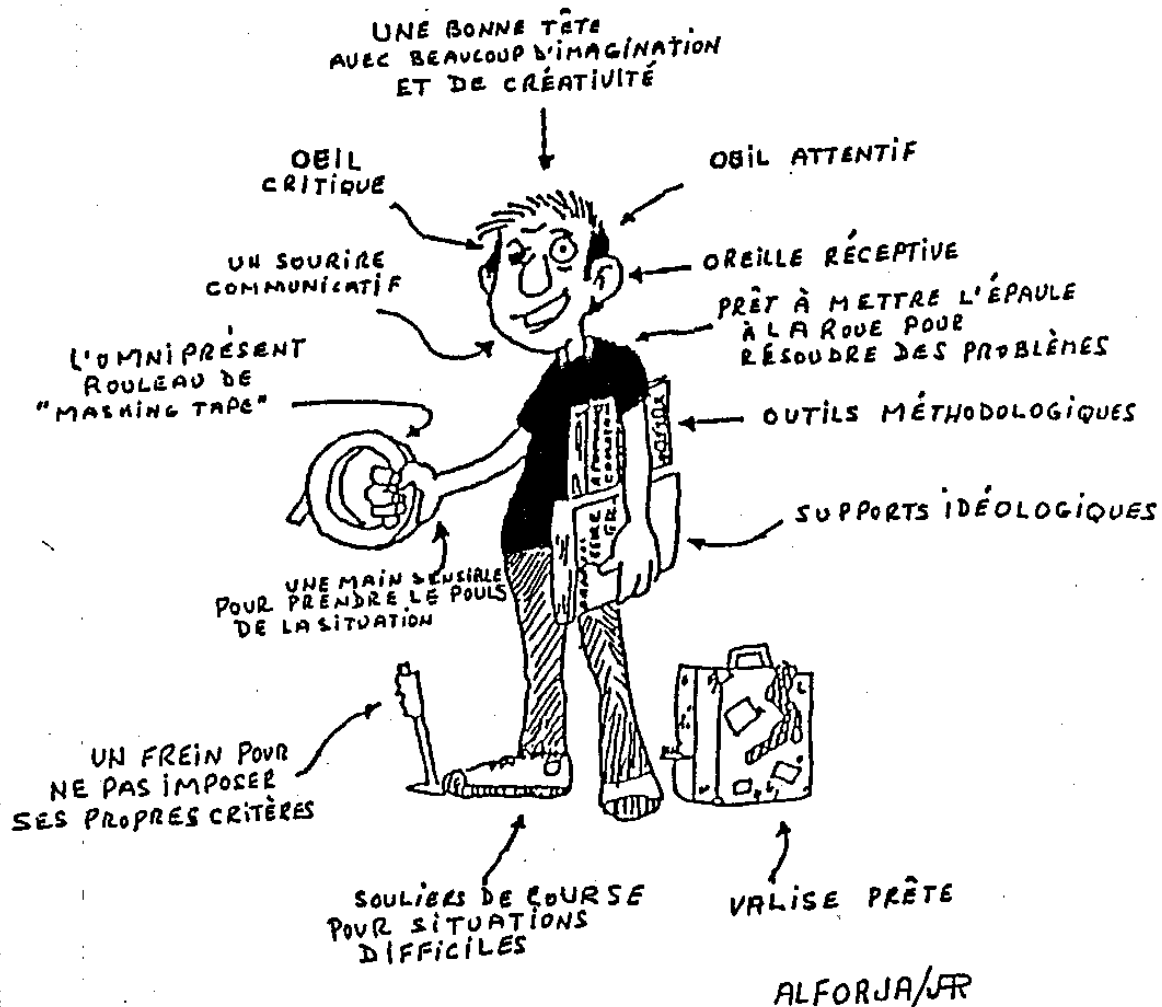 UNE BONNE TÊTE
AVEC BEAUCOUP D'IMAGINATION
ET DE CRÉATIVITÉ
OEIL
CRITIQUE
OEIL ATTENTIF
UN SOURIRE
COMMUNICATIF
OREILLE RÉCEPTIVE
PRÊT À METTRE L'ÉPAULE
À LA ROUE POUR
RÉSOUDRE DES PROBLÈMES
L'OMNIPRÉSENT
ROULEAU DE
"MASKING TAPE"
OUTILS MÉTHODOLOGIQUES
SUPPORTS IDÉOLOGIQUES
UNE MAIN SENSIBLE
POUR PRENDRE LE POULS
DE LA SITUATION
UN FREIN POUR
NE PAS IMPOSER
SES PROPRES CRITÈRES
SOULIERS DE COURSE
POUR SITUATIONS
DIFFICILES
VALISE PRÊTE
ALFORJA/